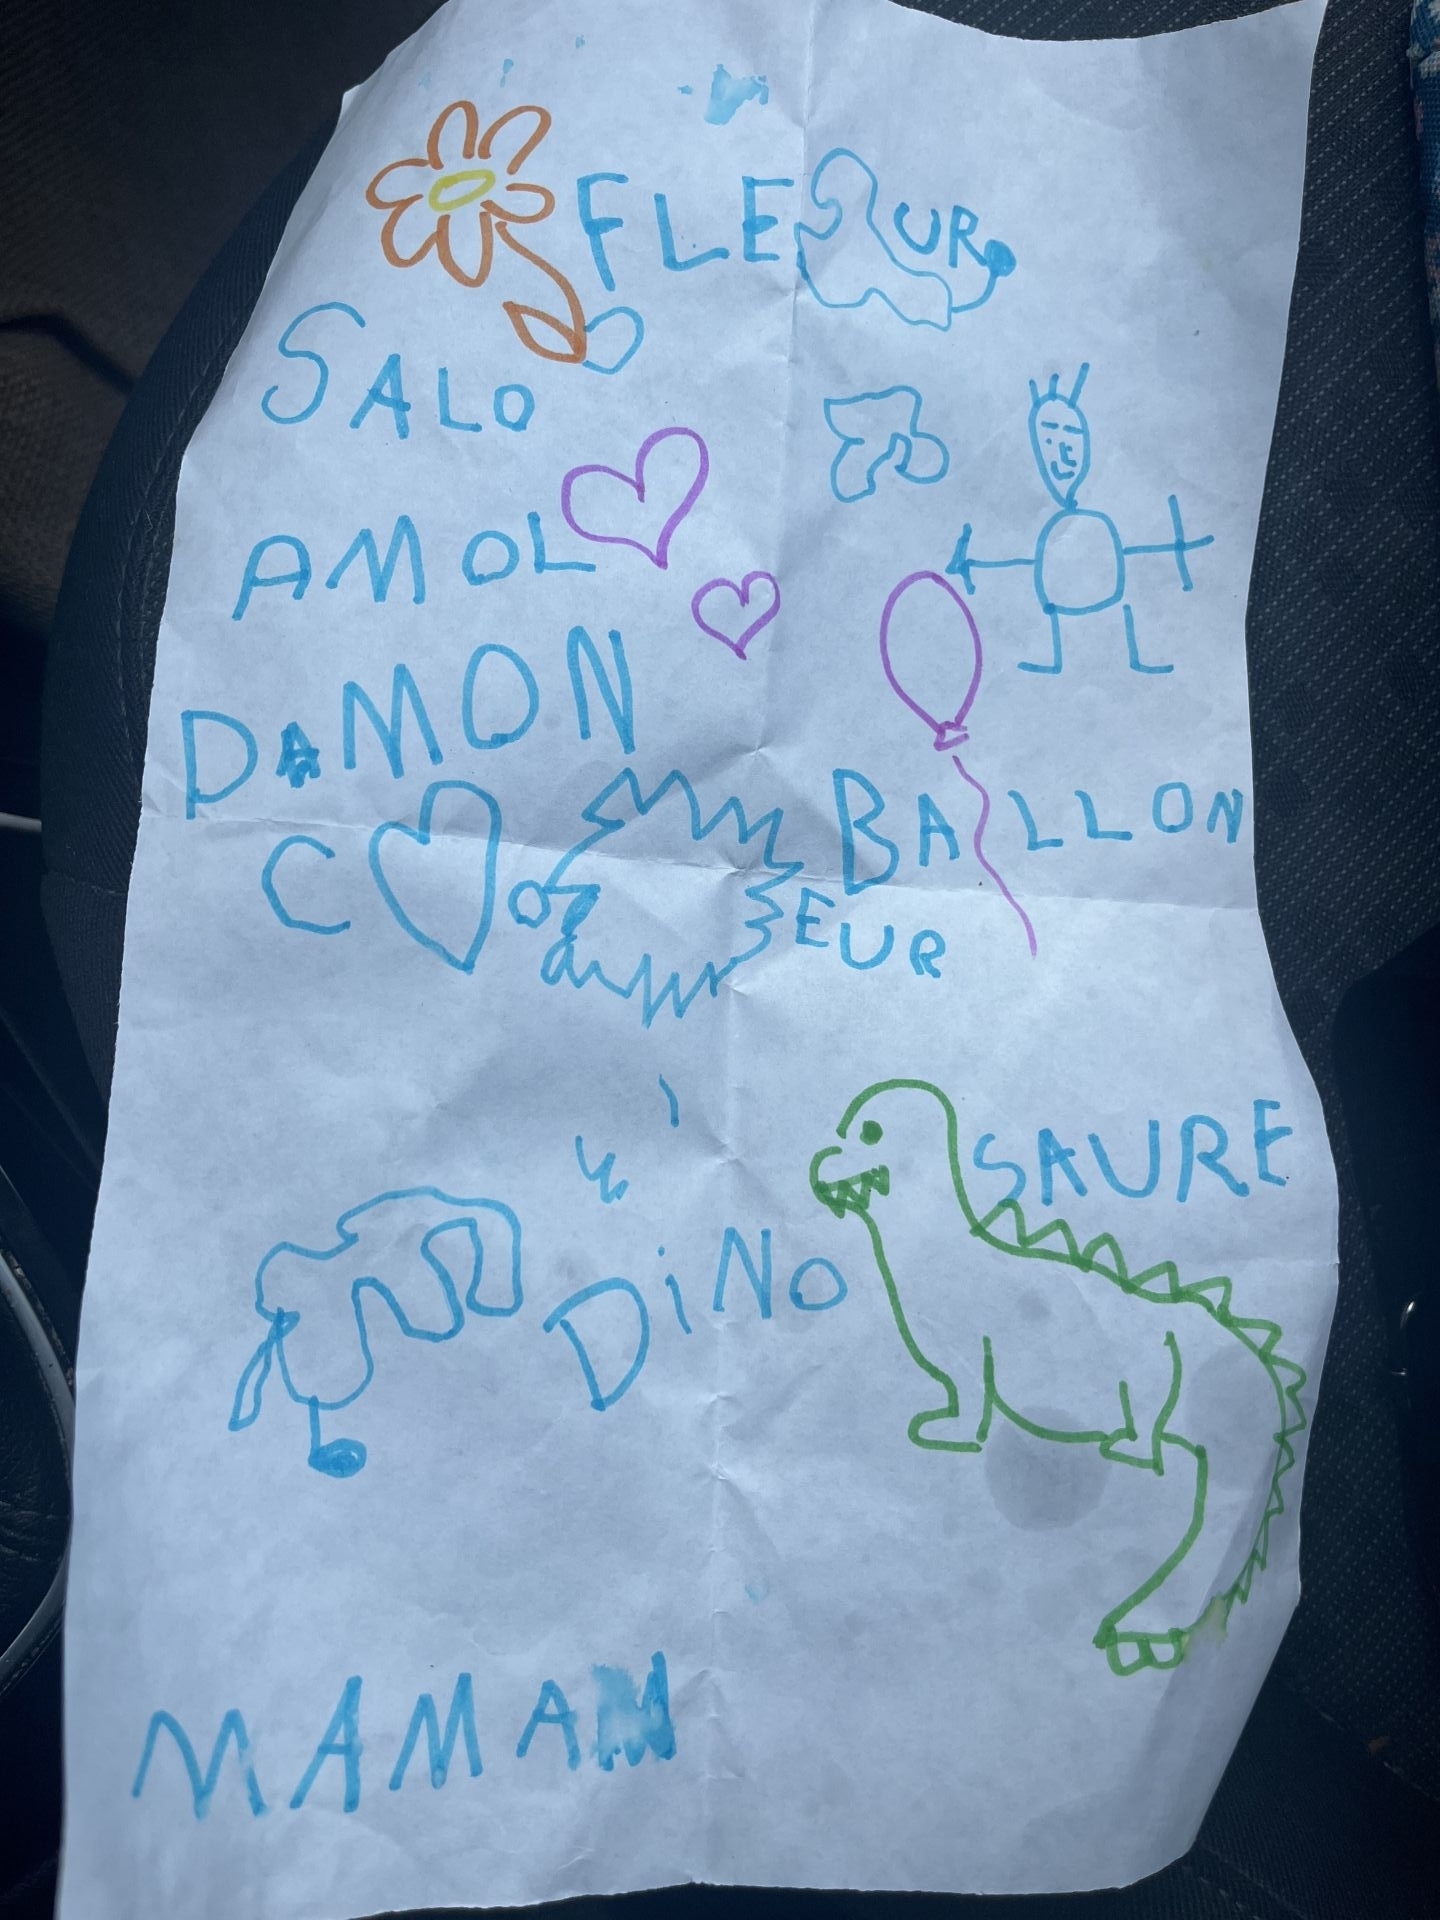 FLEUR
SALO
AMOL
DAMON
BALLON
C
EUR
SAURE
DiNO
MAMAN